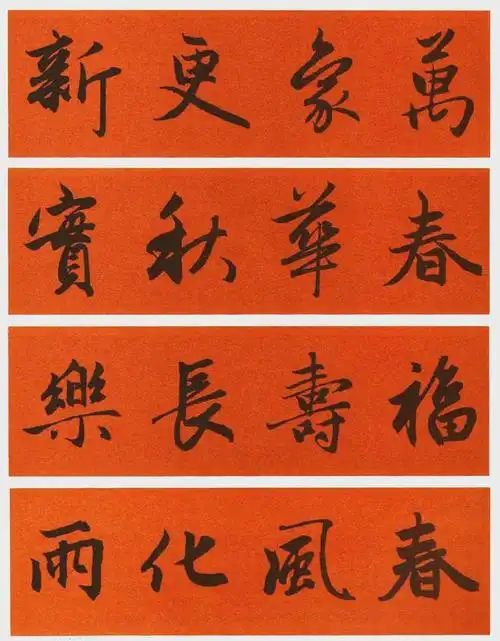 萬象更新
春華秋實
福壽長樂
春風化雨